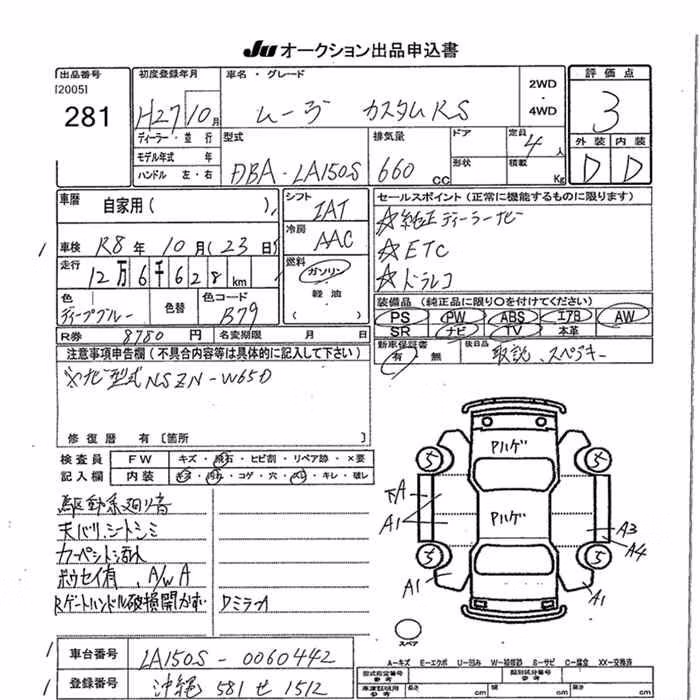 JU オークション出品申込書
出品番号
[2005]
281
初度登録年月
H27 10月
車名・グレード
ムーヴ カスタムRS
2WD
・
4WD
評価点
3
外装 内装
D D
ディーラー・並行
モデル年式 年
ハンドル 左・右
型式
DBA-LA150S
排気量
660 cc
ドア
形状
定員
4人
積載
Kg
車歴
自家用( )
車検 R8年10月(23日)
走行
12万6千628km
色
ディープブルー
色替
色コード
B79
シフト
IAT
冷房
AAC
燃料
ガソリン
軽油
( )
セールスポイント(正常に機能するものに限ります)
☆純正ディーラーナビ
☆ETC
☆ドラレコ
装備品(純正品に限り○を付けてください)
PS PW ABS エアB AW
SR ナビ TV 本革
R券 8780円 名変期限 月 日
新車保証書
有 無
後日品
取説、スペアキー
注意事項申告欄(不具合内容等は具体的に記入して下さい)
※ナビ型式NSZN-W65D
修復歴 有[箇所
検査員
記入欄
FW キズ・飛石・ヒビ割・リペア跡・×要
内装 キズ・汚れ・コゲ・穴・スレ・キレ・破レ
駆動系廻り音
天バリ、シートシミ
カーペット汚れ
ボウセイ有、A/W A
Rゲートハンドル破損開かず
DミラーA
アルゲ
アルゲ
5 5
5 5
下A
A1
A1
A3
A4
A1
スペア
A-キズ E-エクボ U-凹み W-補修跡 S-サビ C-腐食 XX-交換済
車台番号 LA150S-0060442
登録番号 沖縄 581 せ 1512
型式指定番号
参考
類別区分番号
参考
車両寸法
参考
cm cm cm